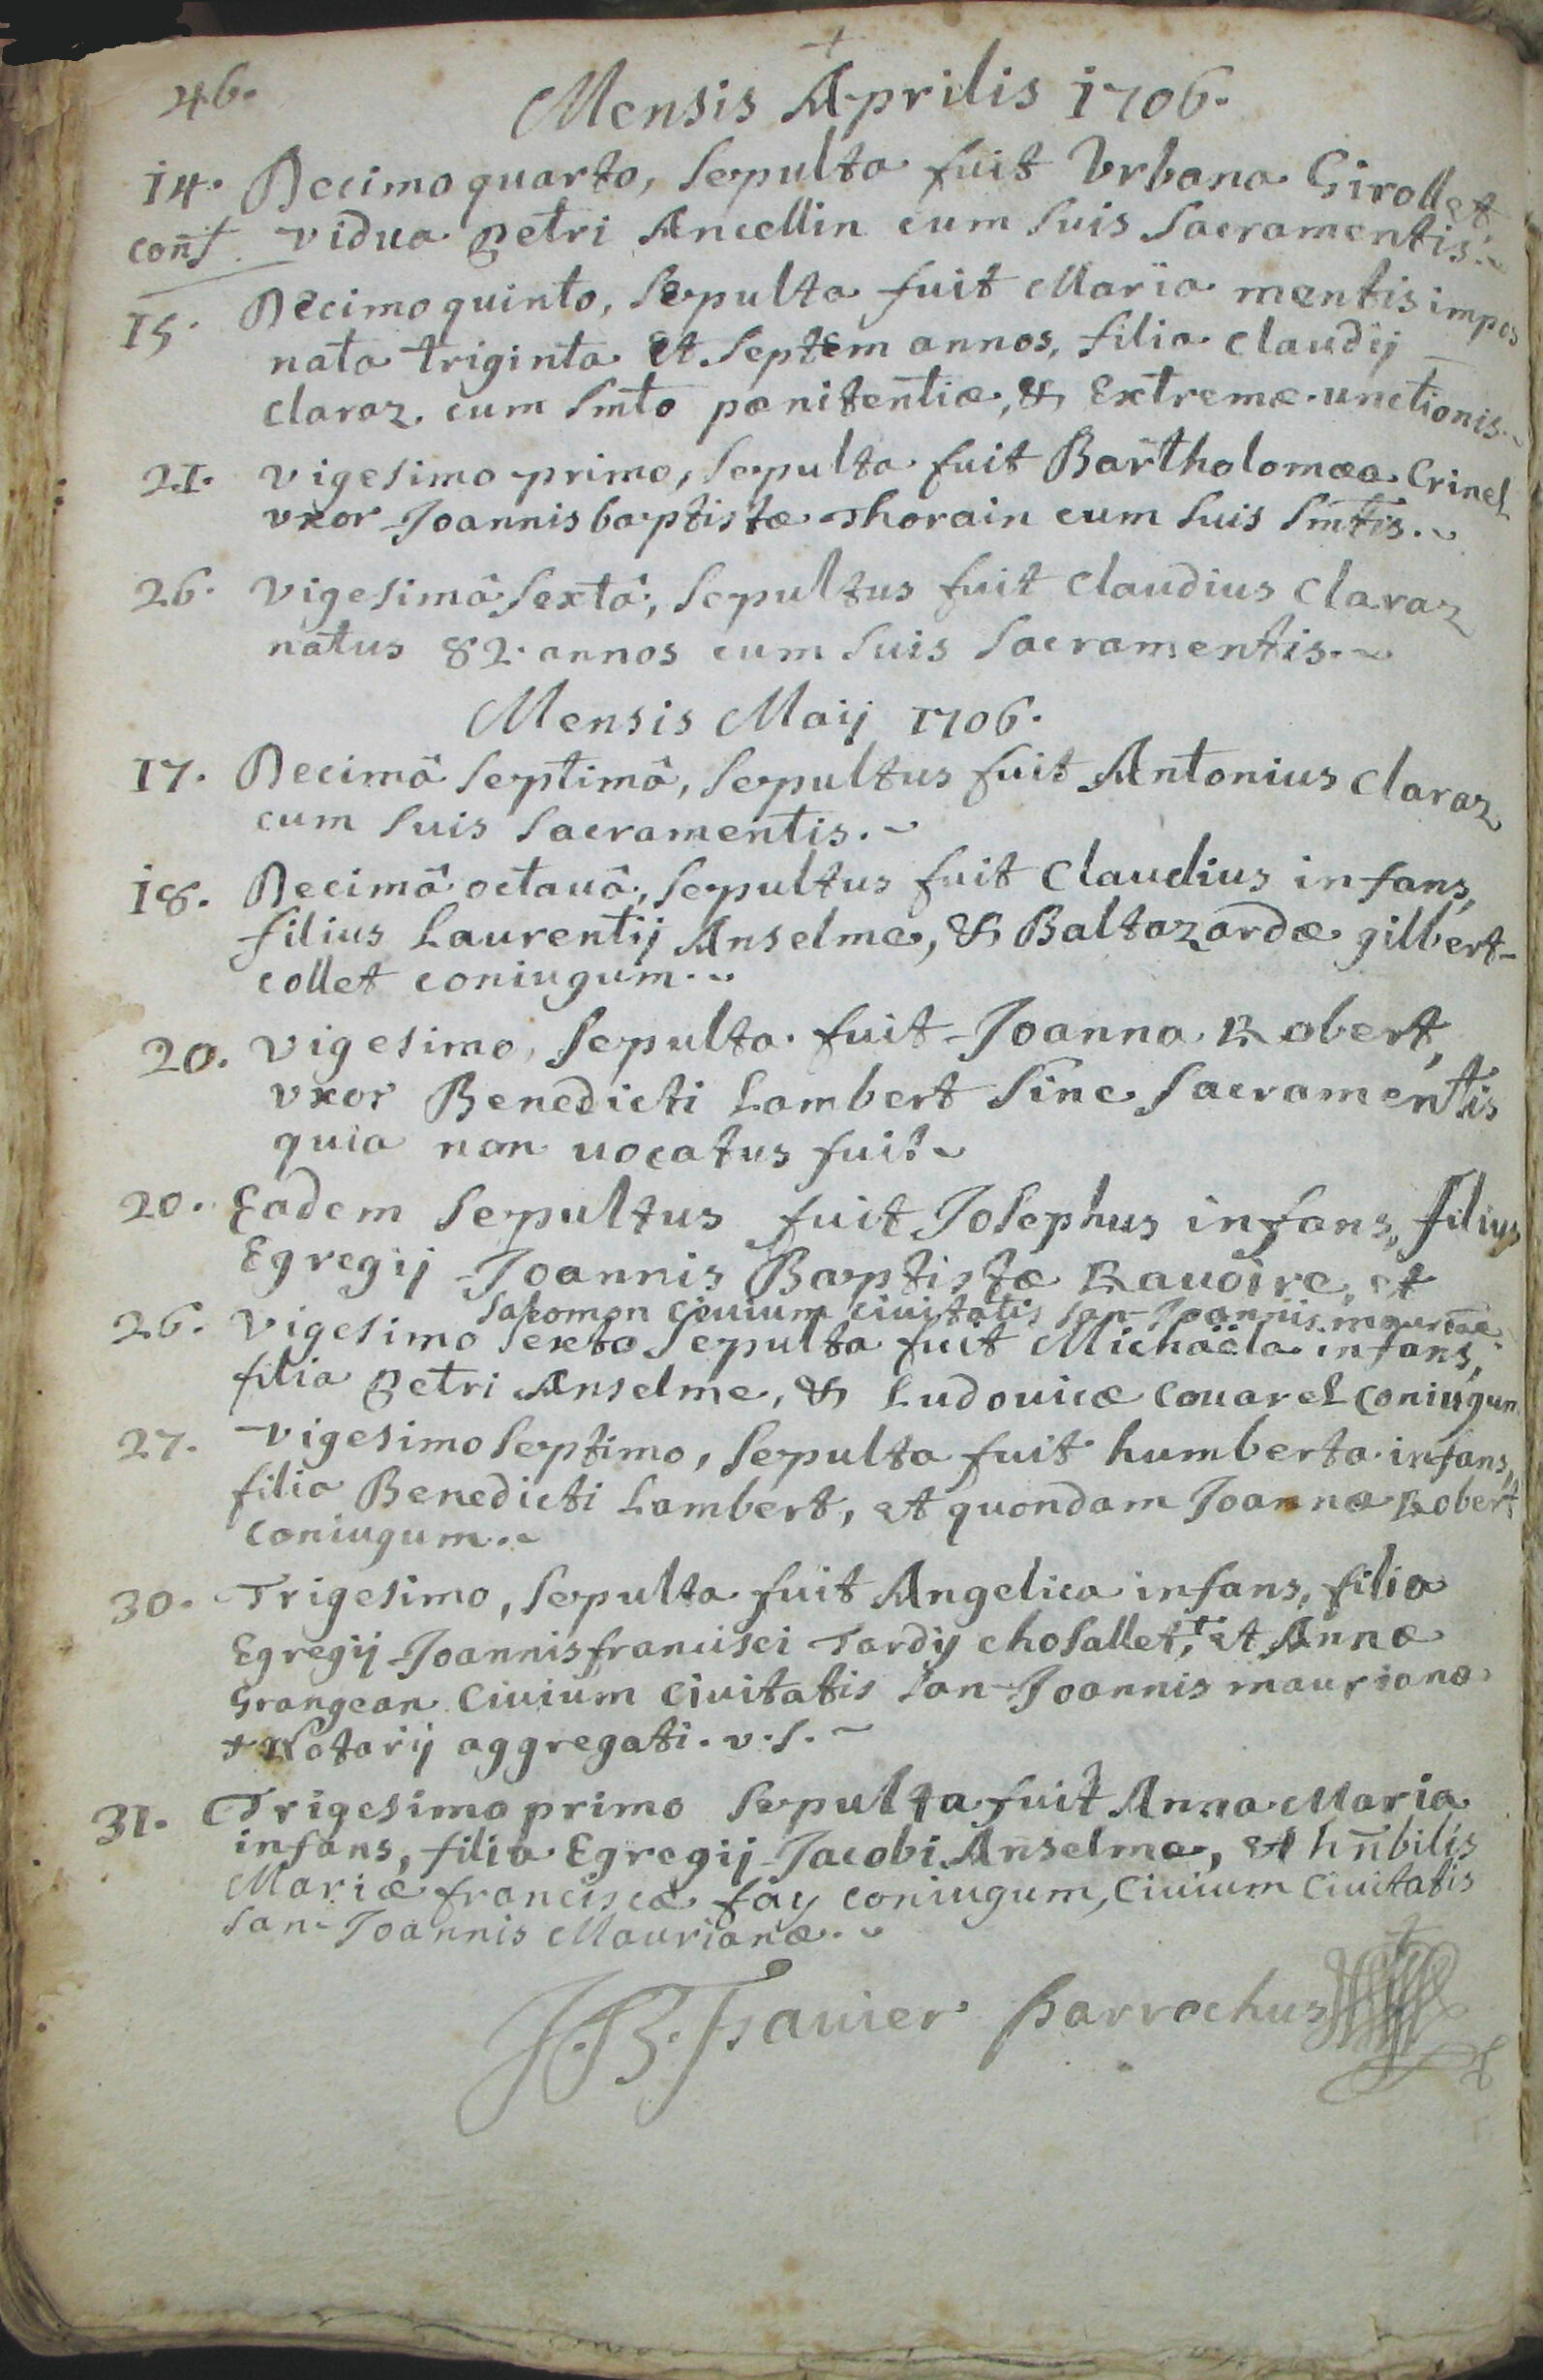 46.
+
Mensis Aprilis 1706.
14. Decimo quarto, sepulta fuit Vrbana Girollet
conf. vidua petri Ancellin cum suis sacramentis.
15. Decimo quinto, sepulta fuit Maria mentis impos
nata triginta et septem annos, filia claudij
claraz. cum smto pænitentiæ, & Extremæ-unctionis.
21. vigesimo primo, sepulta fuit Bartholomæa Crinel
vxor Joannis baptistæ Thorain cum suis smtis.
26. vigesimâ sextâ, sepultus fuit claudius Claraz
natus 82. annos cum suis sacramentis.
Mensis Maij 1706.
17. Decimâ septimâ, sepultus fuit Antonius claraz
cum suis sacramentis.
18. Decimâ octauâ, sepultus fuit Claudius infans,
filius Laurentij Anselme, & Baltazardæ gilbert-
collet coniugum.
20. vigesimo, sepulta fuit Joanna Robert,
vxor Benedicti Lambert sine sacramentis
quia non uocatus fui!
20. Eadem sepultus fuit Josephus infans, filius
Egregij Joannis Baptistæ Rauoire, et
civium ciuitatis san-Joannis
26. vigesimo sexto sepulta fuit Michaëla infans,
filia petri Anselme, & Ludouicæ Couarel Coniugum
27. vigesimo septimo, sepulta fuit humberta infans,
filia Benedicti Lambert, et quondam Joannæ Robert
coniugum.
30. Trigesimo, sepulta fuit Angelica infans, filia
Egregij Joannis francisci Tardy chosallet,+ et Annæ
Grangean Ciuium Ciuitatis san-Joannis maurianæ
+ Notarij aggregati. v.s.
31. Trigesimo primo sepulta fuit Anna Maria
infans, filia Egregij Jacobi Anselme, et hnbilis
Mariæ franciscæ fay coniugum, Ciuium Ciuitatis
san-Joannis Maurianæ.
J.B. parrochus